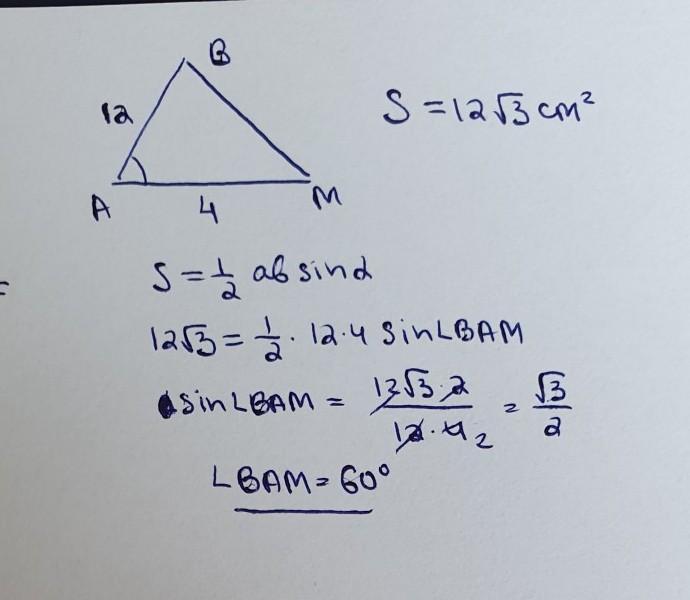 B
12
A
4
M
S = 12√3 cm²
=
S = 1/2 ab sin α
12√3 = 1/2 · 12·4 sin∠BAM
sin∠BAM = 12√3·2 / 12·4 2 = √3/2
∠BAM = 60°